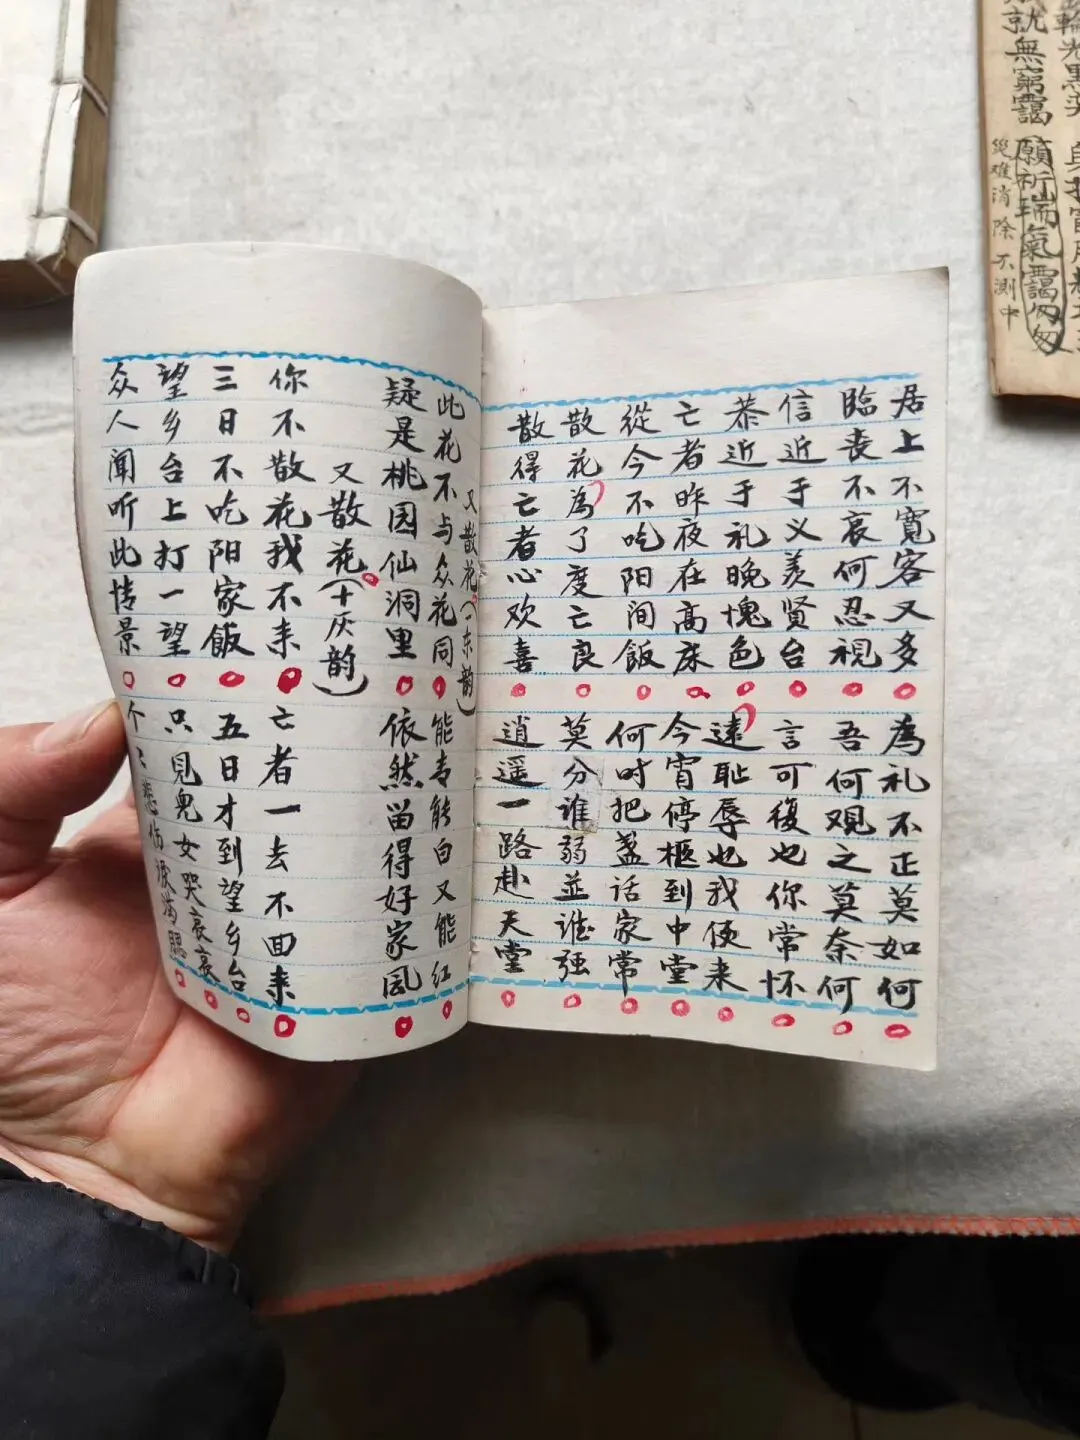 居上不寬客又多 為礼不正莫如何
臨丧不哀何忍視 吾何观之莫奈何
信近于义羡贤台 言可復也你常怀
恭近于礼晚愧色 遠耻辱也我便来
亡者昨夜在高床 今宵停柩到中堂
從今不吃阳间飯 何时把盏话家常
散花為了度亡良 莫分谁弱並谁强
散得亡者心欢喜 逍遥一路赴天堂
又散花(一东韵)
此花不与众花同 能青能白又能红
疑是桃园仙洞里 依然留得好家風
又散花(十灰韵)
你不散花我不来 亡者一去不回来
三日不吃阳家飯 五日才到望乡台
望乡台上打一望 只見兒女哭哀哀
众人闻听此情景 个个悲伤淚满腮
就無窮靄
願祈瑞氣靄匆匆
災难消除不測中